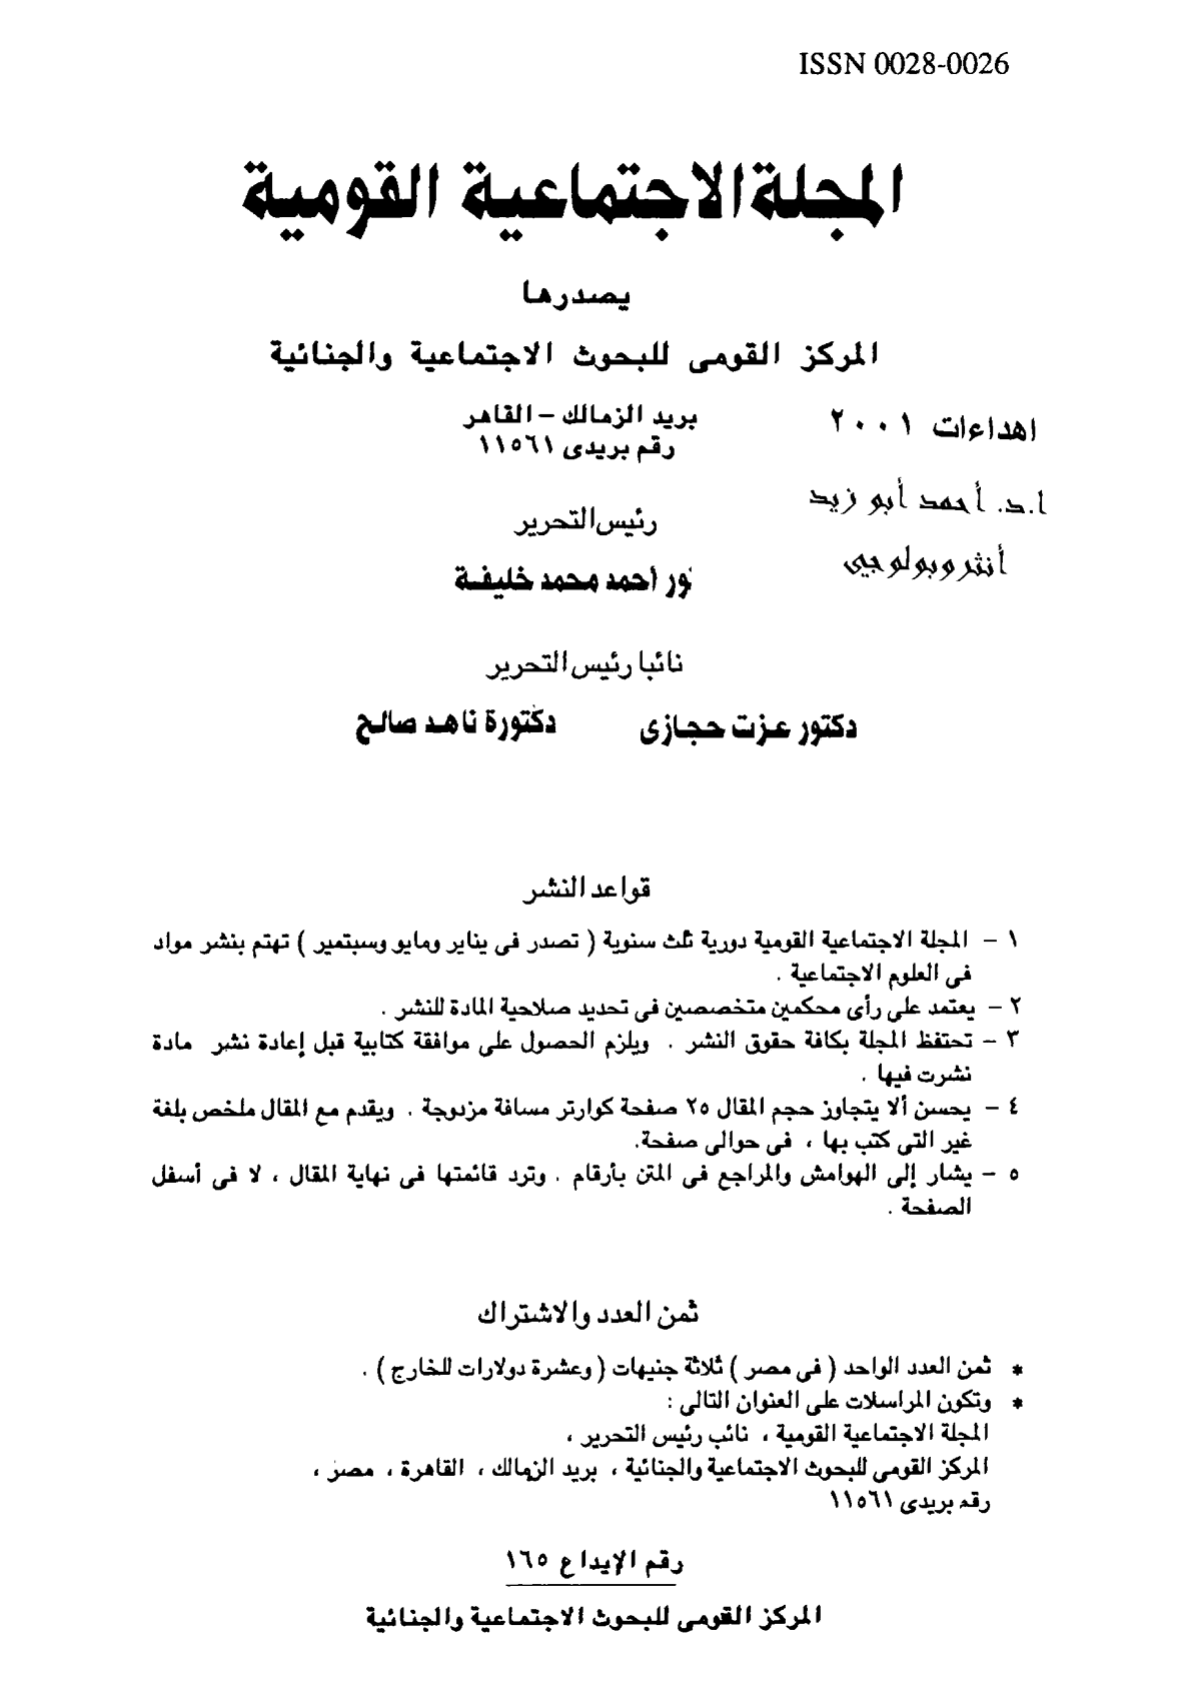 ISSN 0028-0026
المجلة الاجتماعية القومية
يصدرها
المركز القومى للبحوث الاجتماعية والجنائية
بريد الزمالك – القاهر
رقم بريدى ١١٥٦١
اهداءات ٢٠٠١
ا.د. أحمد أبو زيد
أنثروبولوجي
رئيس التحرير
نور أحمد محمد خليفة
نائبا رئيس التحرير
دكتور عزت حجازى دكتورة ناهد صالح
قواعد النشر
١ – المجلة الاجتماعية القومية دورية ثلث سنوية ( تصدر فى يناير ومايو وسبتمبر ) تهتم بنشر مواد
فى العلوم الاجتماعية .
٢ – يعتمد على رأى محكمين متخصصين فى تحديد صلاحية المادة للنشر .
٣ – تحتفظ المجلة بكافة حقوق النشر . ويلزم الحصول على موافقة كتابية قبل إعادة نشر مادة
نشرت فيها .
٤ – يحسن ألا يتجاوز حجم المقال ٢٥ صفحة كوارتر مسافة مزدوجة . ويقدم مع المقال ملخص بلغة
غير التى كتب بها ، فى حوالى صفحة.
٥ – يشار إلى الهوامش والمراجع فى المتن بأرقام . وترد قائمتها فى نهاية المقال ، لا فى أسفل
الصفحة .
ثمن العدد والاشتراك
* ثمن العدد الواحد ( فى مصر ) ثلاثة جنيهات ( وعشرة دولارات للخارج ) .
* وتكون المراسلات على العنوان التالى :
المجلة الاجتماعية القومية ، نائب رئيس التحرير ،
المركز القومى للبحوث الاجتماعية والجنائية ، بريد الزمالك ، القاهرة ، مصر ،
رقم بريدى ١١٥٦١
رقم الإيداع ١٦٥
المركز القومى للبحوث الاجتماعية والجنائية